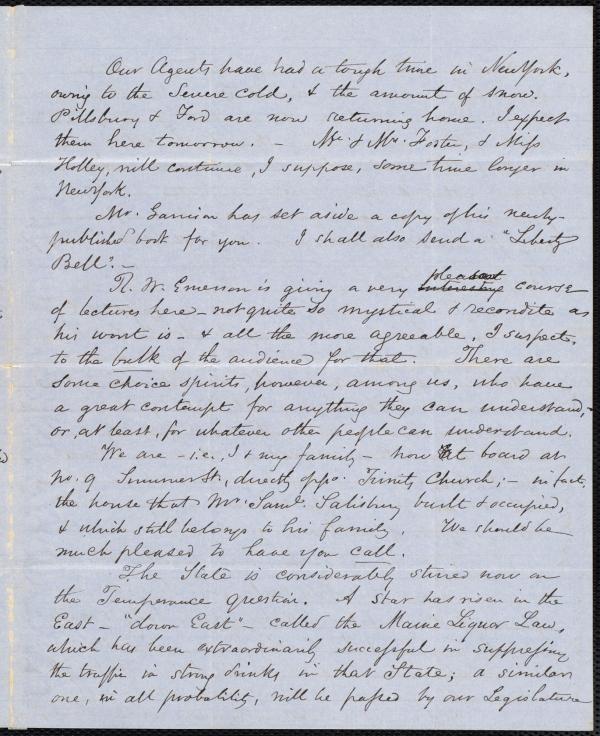 Our Agents have had a tough time in NewYork,
owing to the severe cold, & the amount of snow.
Pillsbury & Ford are now returning home. I expect
them here tomorrow. - Mr. & Mrs. Foster, & Miss
Holley, will continue, I suppose, some time longer in
NewYork.
Mr. Garrison has set aside a copy of his newly-
published book for you. I shall also send a "Liberty
Bell". -
R. W. Emerson is giving a very interesting pleasant course
of lectures here - not quite so mystical & recondite as
his wont is - & all the more agreeable, I suspect,
to the bulk of the audience for that. There are
some choice spirits, however, among us, who have
a great contempt for anything they can understand, -
or, at least, for whatever other people can understand.
We are - i.e., I & my family - now at board at
no. 9 Summer St., directly oppo. Trinity Church; - in fact,
the house that Mr. Saml. Salisbury built & occupied,
& which still belongs to his family. We should be
much pleased to have you call.
The State is considerably stirred now on
the Temperance question. A star has risen in the
East - "down East" - called the Maine Liquor Law,
which has been extraordinarily successful in suppressing
the traffic in strong drinks in that State; a similar
one, in all probability, will be passed by our Legislature